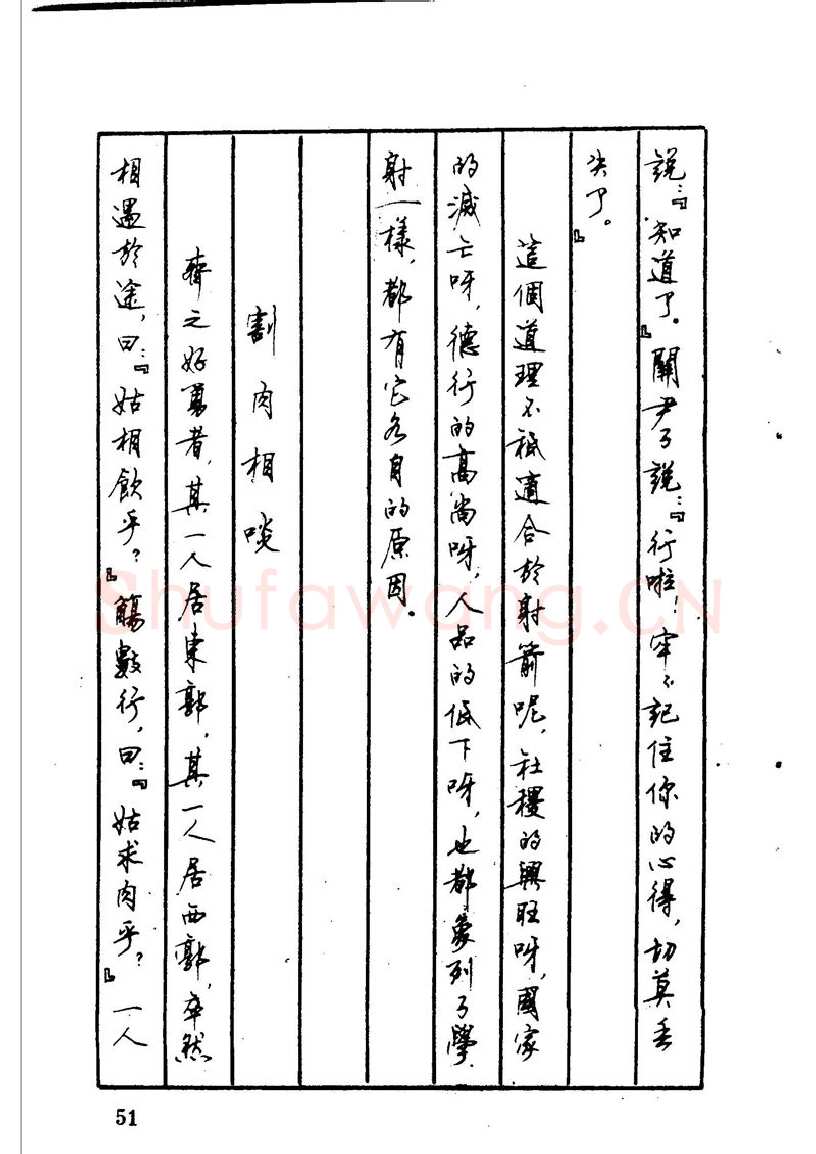 說：『知道了。』關尹子說：『行啦！牢牢記住你的心得，切莫丢
失了。』
這個道理不祇適合於射箭呢，社稷的興旺呀，國家
的滅亡呀，德行的高尚呀，人品的低下呀，也都象列子學
射一樣，都有它各自的原因。
割肉相啖
齊之好勇者，其一人居東郭，其一人居西郭，卒然
相遇於途，曰：『姑相飲乎？』觴數行，曰：『姑求肉乎？』一人
51
Shufawang.CN